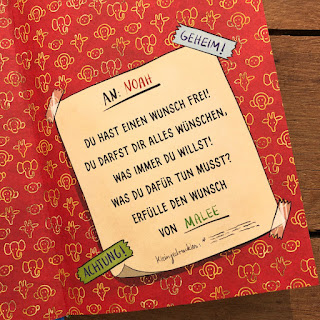 GEHEIM!
AN: NOAH
DU HAST EINEN WUNSCH FREI!
DU DARFST DIR ALLES WÜNSCHEN,
WAS IMMER DU WILLST!
WAS DU DAFÜR TUN MUSST?
ERFÜLLE DEN WUNSCH
VON MALEE
ACHTUNG!